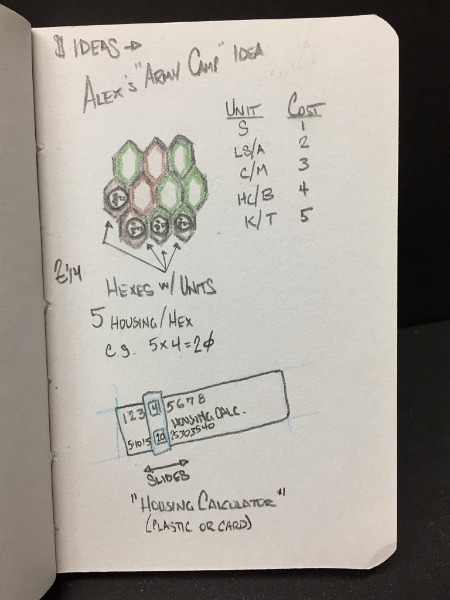 $ IDEAS →
ALEX'S "ARMY CAMP" IDEA
UNIT COST
S 1
LS/A 2
C/M 3
HC/B 4
K/T 5
HEXES W/ UNITS
5 HOUSING/HEX
e.g. 5x4=20
1 2 3 4 5 6 7 8
HOUSING CALC.
5 10 15 20 25 30 35 40
SLIDES
"HOUSING CALCULATOR"
(PLASTIC OR CARD)